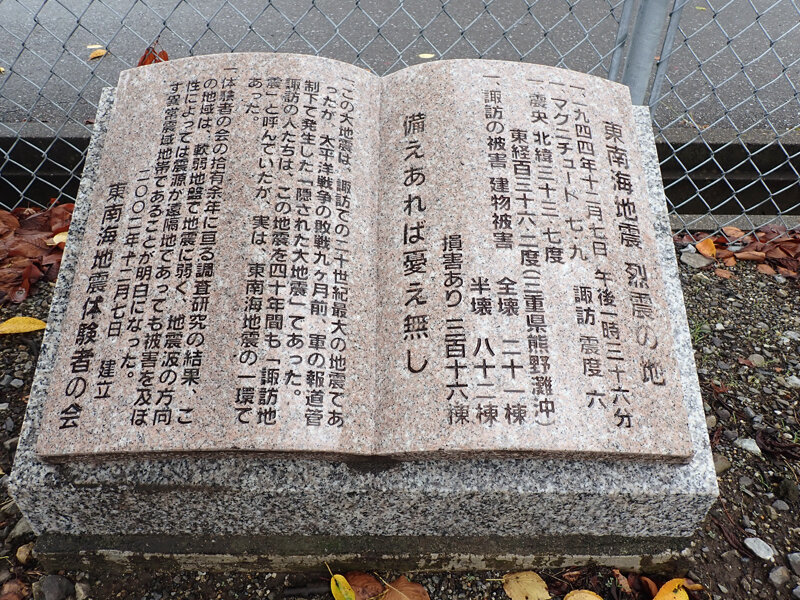 東南海地震 烈震の地
一 一九四四年十二月七日 午後一時三十六分
一 マグニチュード 七、九 諏訪 震度 六
一 震央 北緯三十三、七度
東経百三十六、二度(三重県熊野灘沖)
一 諏訪の被害 建物被害 全壊 二十一棟
半壊 八十二棟
損害あり 三百十六棟
備えあれば憂え無し
一 この大地震は、諏訪での二十世紀最大の地震であ
ったが、太平洋戦争の敗戦九ヶ月前、軍の報道管
制下で発生した「隠された大地震」であった。
諏訪の人たちは、この地震を四十年間も「諏訪地
震」と呼んでいたが、実は、東南海地震の一環で
あった。
一 体験者の会の拾有余年に亘る調査研究の結果、こ
の地域は、軟弱地盤で地震に弱く、地震波の方向
性によっては震源が遠隔地であっても被害を及ぼ
す異常震域地帯であることが明白になった。
二〇〇二年十二月七日 建立
東南海地震体験者の会